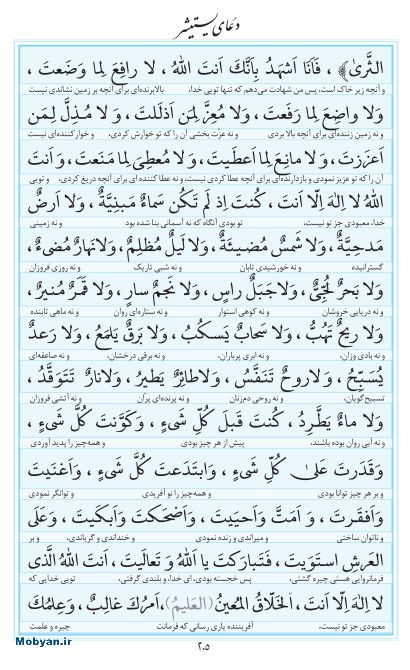 دعای یستشیر
الثَّریٰ﴾ ، فَأَنَا اَشهَدُ بِأَنَّكَ اَنتَ اللهُ ، لا رافِعَ لِما وَضَعتَ ،
و آنچه زیر خاک است، پس من شهادت می‌دهم که تنها تویی خدا، بالابرنده‌ای برای آنچه بر زمین نشاندی نیست
وَلا واضِعَ لِما رَفَعتَ ، وَلا مُعِزَّ لِمَن اَذلَلتَ ، وَ لا مُذِلَّ لِمَن
و نه زمین زننده‌ای برای آنچه بالا بردی و نه عزت بخشی آن را که تو خوارش کردی، و خوارکننده‌ای نیست
اَعزَزتَ ، وَلا مانِعَ لِما اَعطَیتَ ، وَ لا مُعطِیَ لِما مَنَعتَ ، وَ اَنتَ
آن را که تو عزیز نمودی و بازدارنده‌ای برای آنچه عطا کردی نیست، و نه عطا کننده ای برای آنچه دریغ کردی، و تویی
اللهُ لا اِلهَ اِلّا اَنتَ ، کُنتَ اِذ لَم تَکُن سَماءٌ مَبنِیَّةٌ ، وَلا اَرضٌ
خدا، معبودی جز تو نیست، تو بودی آنگاه که نه آسمانی بنا شده بود و نه زمینی
مَدحِیَّةٌ ، وَلا شَمسٌ مُضیـئَةٌ ، وَلا لَیلٌ مُظلِمٌ ، وَلانَهارٌ مُضیءٌ ،
گسترانیده و نه خورشیدی تابان و نه شبی تاریک و نه روزی فروزان
وَلا بَحرٌ لُجِّیٌّ ، وَلاجَبَلٌ راسٍ ، وَلا نَجمٌ سارٍ ، وَلا قَمَرٌ مُنیرٌ ،
و نه دریایی خروشان و نه کوهی استوار و نه ستاره‌ای روان و نه ماهی تابنده
وَلا ریحٌ تَهُبُّ ، وَلا سَحابٌ یَسکُبُ ، وَلا بَرقٌ یَلمَعُ ، وَلا رَعدٌ
و نه بادی وزان، و نه ابری پرباران، و نه برقی درخشان، و نه صاعقه‌ای
یُسَبِّحُ ، وَلاروحٌ تَنَفَّسُ ، وَلاطائِرٌ یَطیرُ ، وَلانارٌ تَتَوَقَّدُ ،
تسبیح‌گویان، و نه روحی دم‌زنان و نه پرنده‌ای پران و نه آتشی فروزان
وَلا ماءٌ یَطَّرِدُ ، کُنتَ قَبلَ کُلِّ شَیءٍ ، وَکَوَّنتَ کُلَّ شَیءٍ ،
و نه آبی روان بوده باشند، پیش از هر چیز بودی و همه‌چیز را پدید آوردی
وَقَدَرتَ عَلیٰ کُلِّ شَیءٍ ، وَابتَدَعتَ کُلَّ شَیءٍ ، وَاَغنَیتَ
و بر هر چیز توانا بودی و همه‌چیز را نو آفریدی و توانگر نمودی
وَاَفقَرتَ ، وَ اَمَتَّ وَاَحیَیتَ ، وَاَضحَکتَ وَاَبکَیتَ ، وَعَلَی
و ناتوان ساختی و میراندی و زنده نمودی و خنداندی و گریاندی، و بر
العَرشِ استَوَیتَ ، فَتَبارَکتَ یا اَللهُ وَ تَعالَیتَ ، اَنتَ اللهُ الَّذی
فرمانروایی هستی چیره گشتی، پس خجسته بودی، ای خدا، و بلندی گرفتی، تویی خدایی که
لا اِلهَ اِلّا اَنتَ ، اَلخَلّاقُ المُعینُ (العَلیمُ) ، اَمرُكَ غالِبٌ ، وَعِلمُكَ
معبودی جز تو نیست، آفریننده یاری رسانی که فرمانت چیره و علمت
۲۰۵
Mobyan.ir